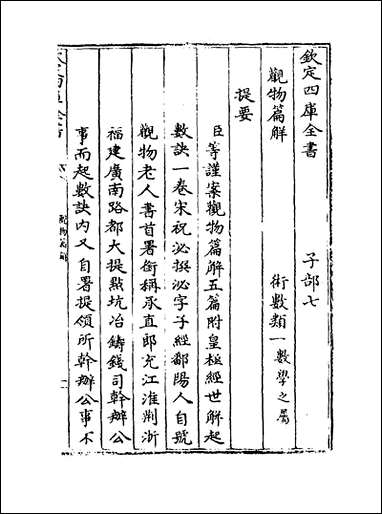 欽定四庫全書　子部七
觀物篇解　術數類一數學之屬
提要
臣等謹案觀物篇解五篇附皇極經世解起
數訣一卷宋祝泌撰泌字子經鄱陽人自號
觀物老人書首署銜稱承直郎充江淮荆浙
福建廣南路都大提㸃坑冶鑄錢司幹辦公
事而起數訣内又自署提領所幹辦公事不
觀物篇解